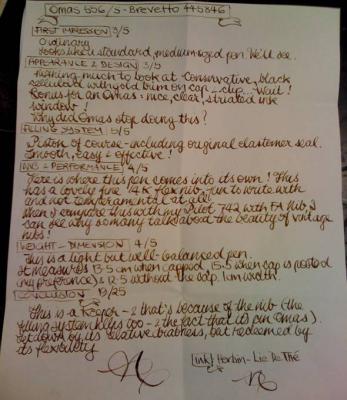 Omas 556/S - Brevetto 445846
FIRST IMPRESSION 3/5
Ordinary
Looks like a standard, medium sized pen. We'll see.
APPEARANCE & DESIGN 3/5
Nothing much to look at - conservative, black
celluloid with gold trim on cap - clip... Wait!
Bonus for an Omas = nice, clear, striated ink
window!
Why did Omas stop doing this?
FILLING SYSTEM 5/5
Piston of course - including original elastomer seal.
Smooth, easy & effective!
NIB & PERFORMANCE 4/5
Here is where this pen comes into its own! This
has a lovely fine 14K flex nib, fun to write with
and not temperamental at all!
When I compare this with my Pilot 742 with FA Nib, I
can see why so many talk about the beauty of vintage
nibs!
WEIGHT - DIMENSION 4/5
This is a light but well-balanced pen.
It measures 13.5 cm when capped, 15.5 when cap is posted
(my preference) & 12.5 without the cap. 1cm width.
CONCLUSION 19/25
This is a keeper - & that's because of the nib (the
filling system helps too - & the fact that its an Omas)
Let down by its relative drabness, but redeemed by
its flexibility
[ink] Herbin - Lie De Thé